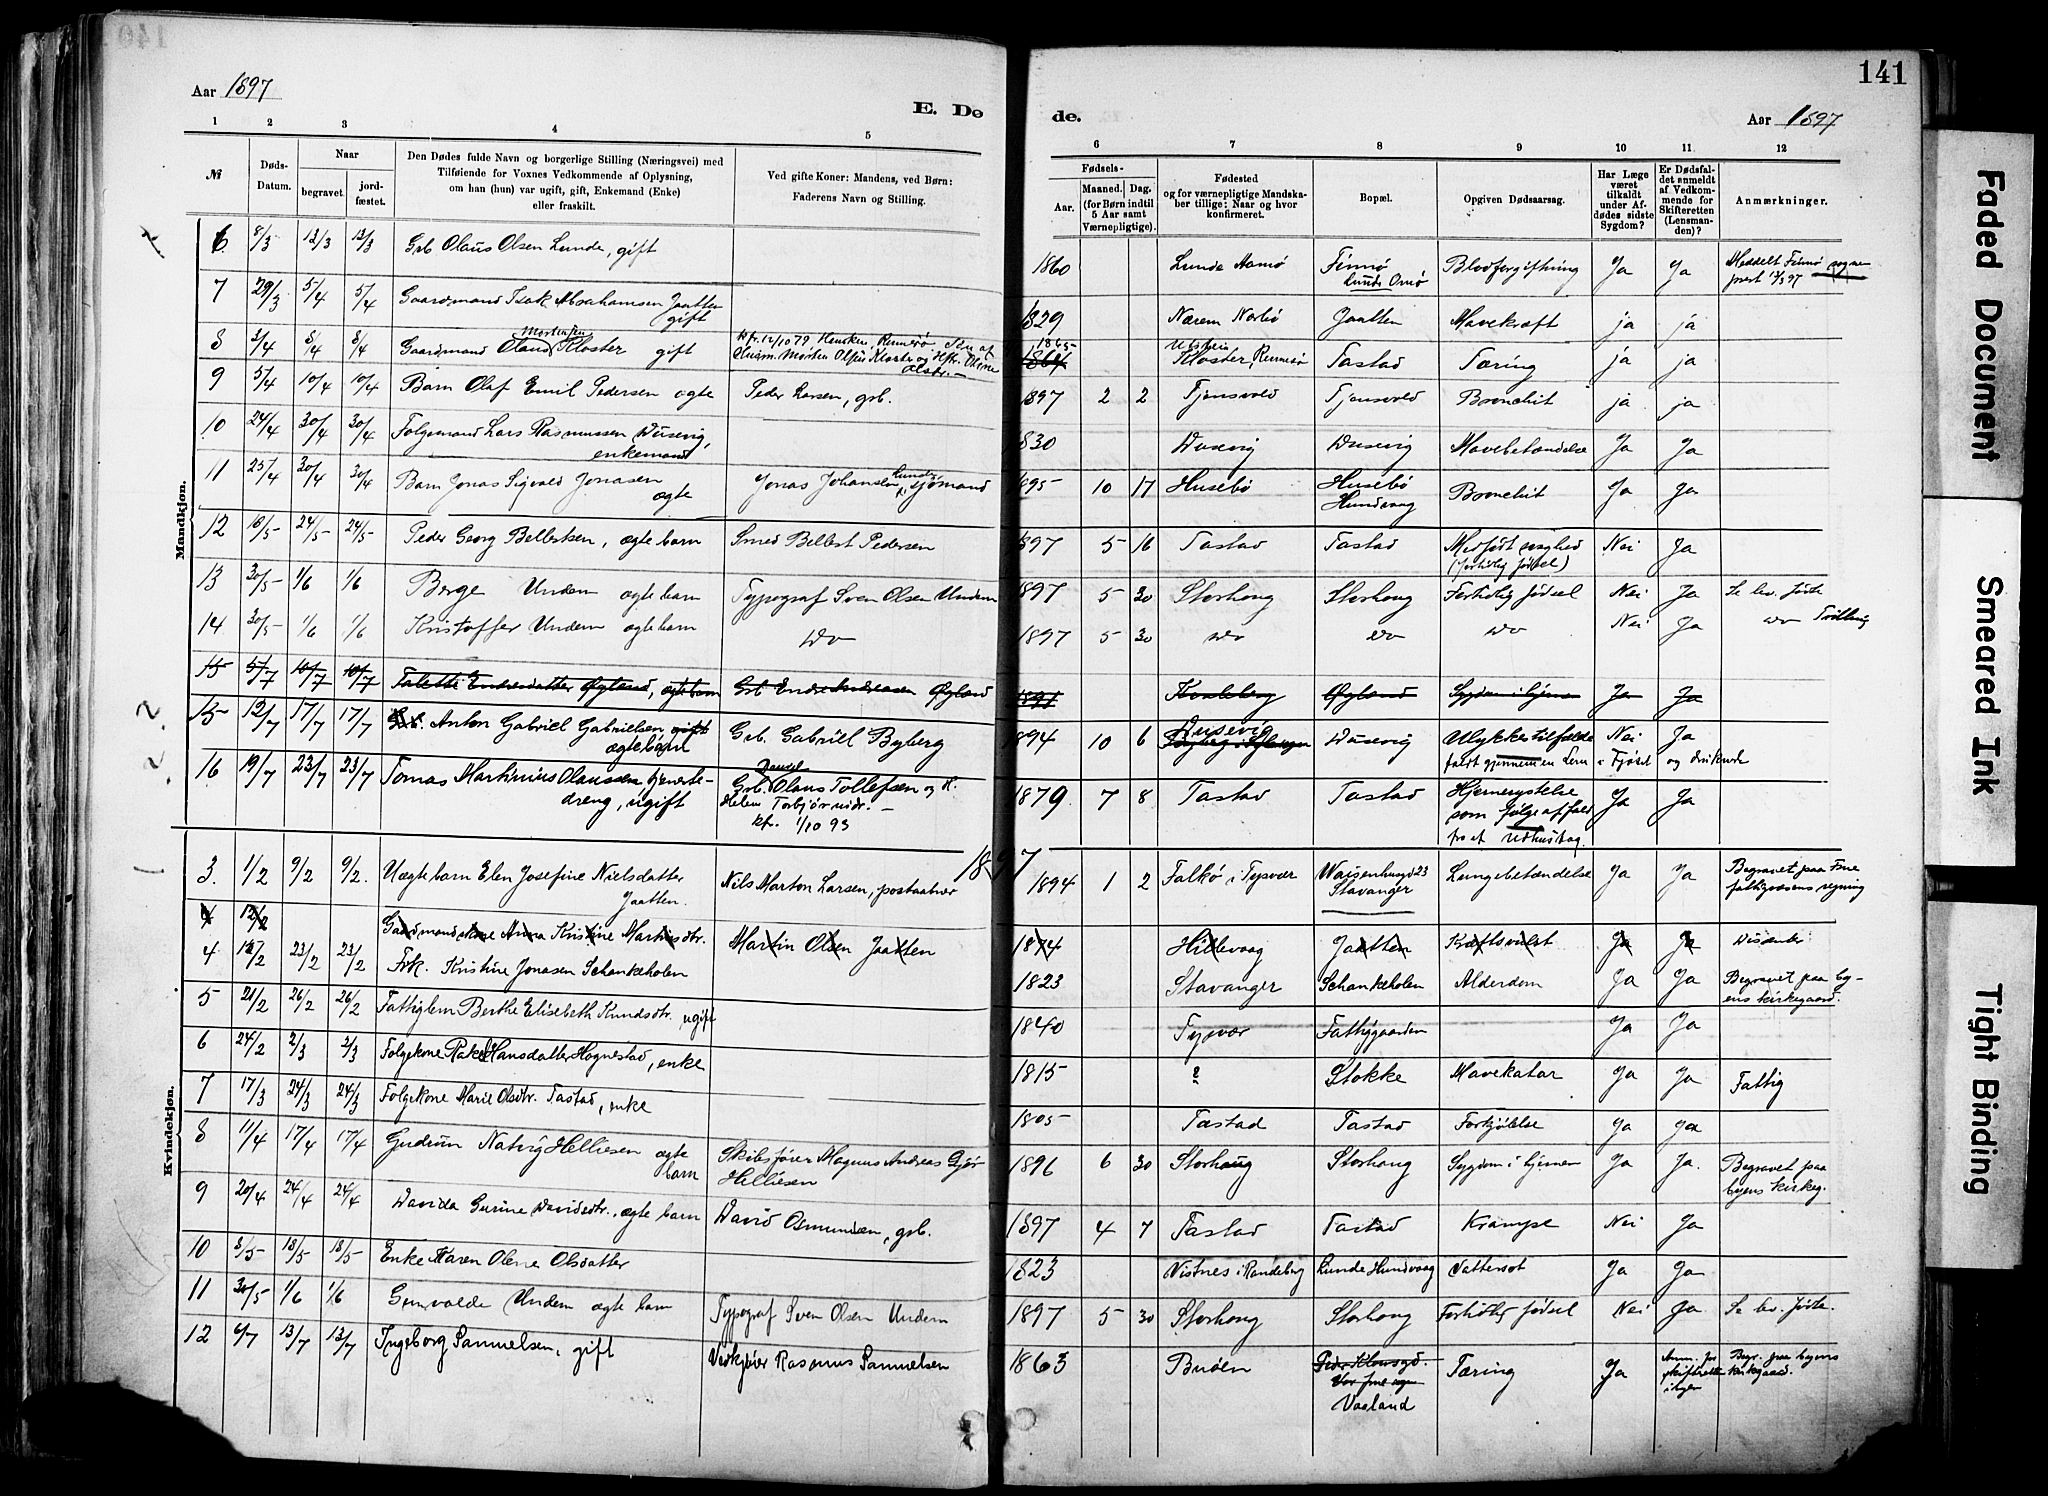 140
Aar 1897
E. Dø
1 2 3 4 5
№
Døds-Datum.
Naar
begravet.
jordfæstet.
Den Dødes fulde Navn og borgerlige Stilling (Næringsvei) med
Tilføiende for Voxnes Vedkommende af Oplysning,
om han (hun) var ugift, gift, Enkemand (Enke)
eller fraskilt.
Ved gifte Koner: Mandens, ved Børn:
Faderens Navn og Stilling.
Mandkjøn.
6 8/3 13/3 13/3 Grb. Olaus Olsen Lunde, gift
7 29/3 5/4 5/4 Gaardmand Isak Abrahamsen Jaatten
gift
8 3/4 8/4 8/4 Gaardmand Olaus Mortensen Kloster gift
9 5/4 10/4 10/4 Barn Olaf Emil Pedersen ægte Peder Larsen, grb.
10 24/4 30/4 30/4 Følgemand Lars Rasmussen Dusevig,
enkemand
11 25/4 30/4 30/4 Barn Jonas Sigvald Jonasen
ægte Jonas Johansen Lunde, sjømand
12 18/5 24/5 24/5 Peder Georg Bellestsen, ægte barn Smed Bellest Pedersen
13 30/5 1/6 1/6 Børge Undem ægte barn Typograf Sven Olsen Undem
14 30/5 1/6 1/6 Kristoffer Undem ægte barn Do
15 5/7 10/7 10/7 Talette Endresdatter Øgland, ægte barn Grb. Endre Andreasen Øgland
15 12/7 17/7 17/7 Grb. Anton Gabriel Gabrielsen gift
ægte barn Grb. Gabriel Byberg
16 19/7 23/7 23/7 Tomas Martinius Olaussen tjeneste-
dreng, ugift Grb. Olaus Tollefsen og H.
Helene Torbjørnsdr.
kfr. 1/10 93
1897
Kvindekjøn.
3. 1/2 9/2 9/2. Uægte barn Elen Josefine Nielsdatter
Jaatten. Nils Morton Larsen, postaabner
4 12/2 Gaardmandskone Anna Kristine Martinsdtr. Martin Olsen Jaatten
4 15/2 23/2 23/2 Frk. Kristine Jonasen Schankeholen
5 21/2 26/2 26/2 Fattiglem Berthe Elisabeth Knudsdtr. ugift
6 24/2 2/3 2/3 Følgekone Rakel Hansdatter Hognestad, enke
7 17/3 24/3 24/3 Følgekone Marie Olsdtr. Tastad, enke
8 11/4 17/4 17/4 Gudrun Natvig Helliesen ægte
barn Skibsfører Magnus Andreas Gjør
Helliesen
9 20/4 24/4 24/4 Davida Gurine Davidsdtr., ægte barn David Osmundsen, grb.
10 8/5 18/5 18/5 Enke Karen Olene Olsdatter
11 30/5 1/6 1/6 Gunvalde Undem ægte barn Typograf Sven Olsen Undem
12 6/7 13/7 13/7 Ingeborg Samuelsen, gift Vedkjører Rasmus Samuelsen
141
de.
Aar 1897
6 7 8 9 10 11 12
Fødsels-
Aar.
Maaned. Dag.
(for Børn indtil
5 Aar samt
Værnepligtige).
Fødested
og for værnepligtige Mandska-
ber tillige: Naar og hvor
konfirmeret.
Bopæl.
Opgiven Dødsaarsag.
Har Læge
været
tilkaldt
under Af-
dødes sidste
Sygdom?
Er Dødsfal-
det anmeldt
af Vedkom-
mende for
Skifteretten
(Lensman-
den)?
Anmærkninger.
1860 Finnø
Lunde Omø Blodforgiftning Ja Ja Meddelt Finnø sogne
prest 13/3 97
1829 Jaatten Mavekræft ja ja
1865
1864 Utstein
Kloster, Rennesø Tastad Tæring ja ja
1897 2 2 Tjensvold Tjensvold Bronchit ja ja
1830 Dusevig Dusevig Mavebetændelse Ja Ja
1895 10 17 Husebø Husebø
Hundvaag Bronchit Ja Ja
1897 5 16 Tastad Tastad Medfødt svaghed
(fortidlig fødsel) Nei Ja
1897 5 30 Storhaug Storhaug Fortidlig fødsel Nei Ja Se lev. fødte
1897 5 30 do do do Nei Ja do Trilling
1891 Kvaleberg Øgland Sygdom i hjernen Ja Ja
1894 10 6 Dusevig Dusevig Ulykkestilfælde Nei Ja
faldt gjennem en Lem i Fjøset og druknede
1879 7 8 Tastad Tastad Hjernerystelse
som følge af fald
fra et udhustag. Ja Ja
1894 1 2 Falkø i Tysvær Waisenhusgd 23
Stavanger Lungebetændelse Ja Ja Begravet paa Frue
fattigvæsens regning
1874 Hillevaag Jaatten Kræftsvulst Ja Ja Dissenter
1823 Stavanger Schankeholen Alderdom Ja Ja Begravet paa by-
ens kirkegaard.
1840 Tysvær Fattiggaarden Ja Ja
1815 ? Stokke Mavekatar Ja Ja Fattig
1805 Tastad Tastad Forkjølelse Ja Ja
1896 6 30 Storhaug Storhaug Sygdom i hjernen Ja Ja. Begravet paa
byens kirkeg.
1897 4 7 Tastad Tastad Krampe Nei Ja
1823 Vistnes i Randeberg Lunde Hundvaag Vattersot Ja Ja
1897 5 30 Storhaug Storhaug Fortidlig fødsel Nei Ja Se lev. fødte.
1863 Buøen Vor frue sogn
Vaaland Tæring Ja Anm. for
skifteretten
i byen Begr. paa byens
kirkegaard.
Faded Document
Smeared Ink
Tight Binding